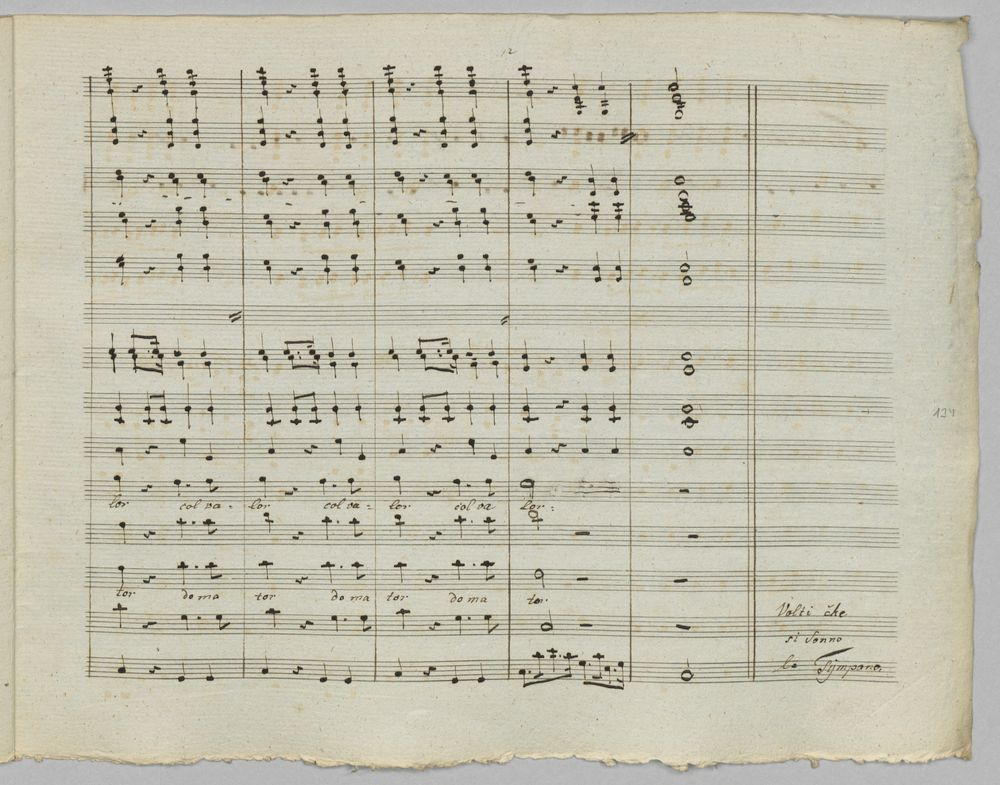 12
124
lor col va- lor col va- lor col va lor:
tor do ma tor do ma tor do ma tor
Volti che
si sonno
le Tÿmpano.